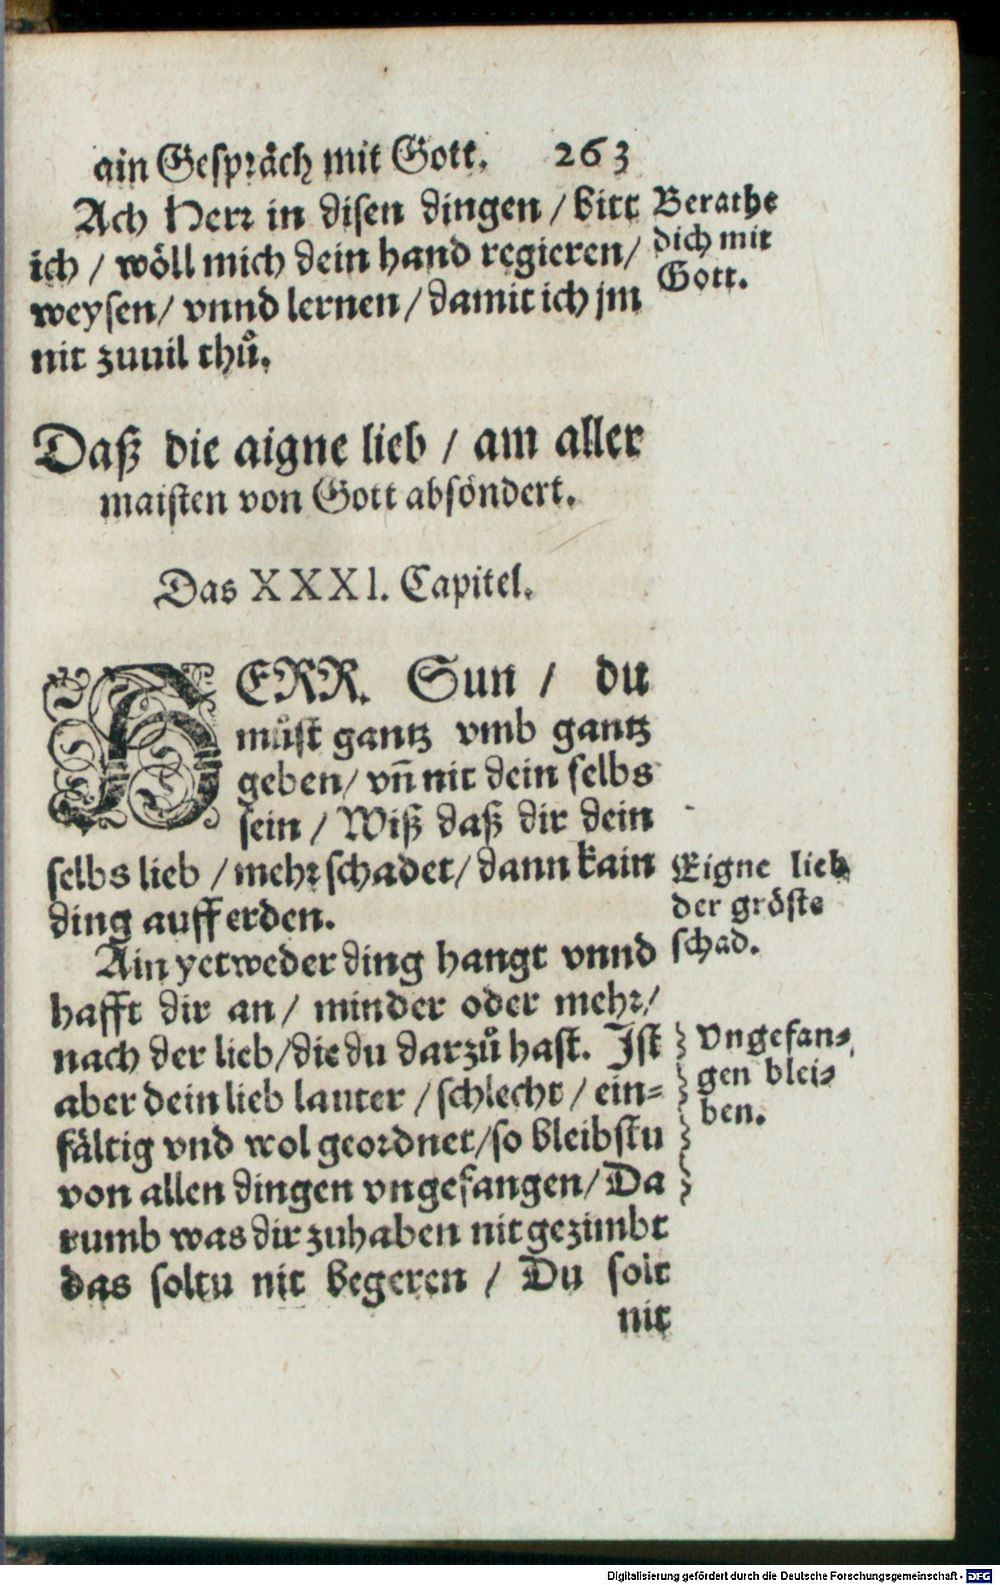 ain Gespräch mit Gott. 263
Ach Herr in disen dingen / bitt
ich / wöll mich dein hand regieren /
weysen / vnnd lernen / damit ich jm
nit zuuil thuͦ.
Berathe
dich mit
Gott.
Daß die aigne lieb / am aller
maisten von Gott absöndert.
Das XXXI. Capitel.
HERR. Sun / du
muͦst gantz vmb gantz
geben / vn̄ nit dein selbs
sein / Wiß daß dir dein
selbs lieb / mehr schadet / dann kain
ding auff erden.
Eigne lieb
der gröste
schad.
Ain yetweder ding hangt vnnd
hafft dir an / minder oder mehr /
nach der lieb / die du darzuͦ hast. Ist
aber dein lieb lauter / schlecht / ein-
fältig vnd wol geordnet / so bleibstu
von allen dingen vngefangen / Da
rumb was dir zuhaben nit gezimbt
das soltu nit begeren / Du solt
nit
Vngefan-
gen blei-
ben.
Digitalisierung gefördert durch die Deutsche Forschungsgemeinschaft - DFG